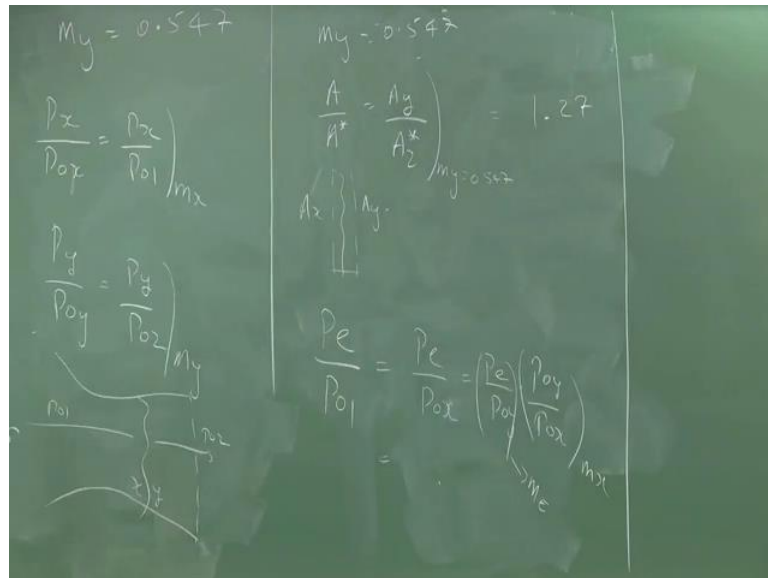 My = 0.547
Px/Pox = Px/Po1)Mx
Py/Poy = Py/Po2)My
Po1
Po2
x y
My = 0.547
A/A* = Ay/A2*)My=0.547 = 1.27
Ax Ay
Pe/Po1 = Pe/Pox = (Pe/Poy)(Poy/Pox)Mx
Me
=